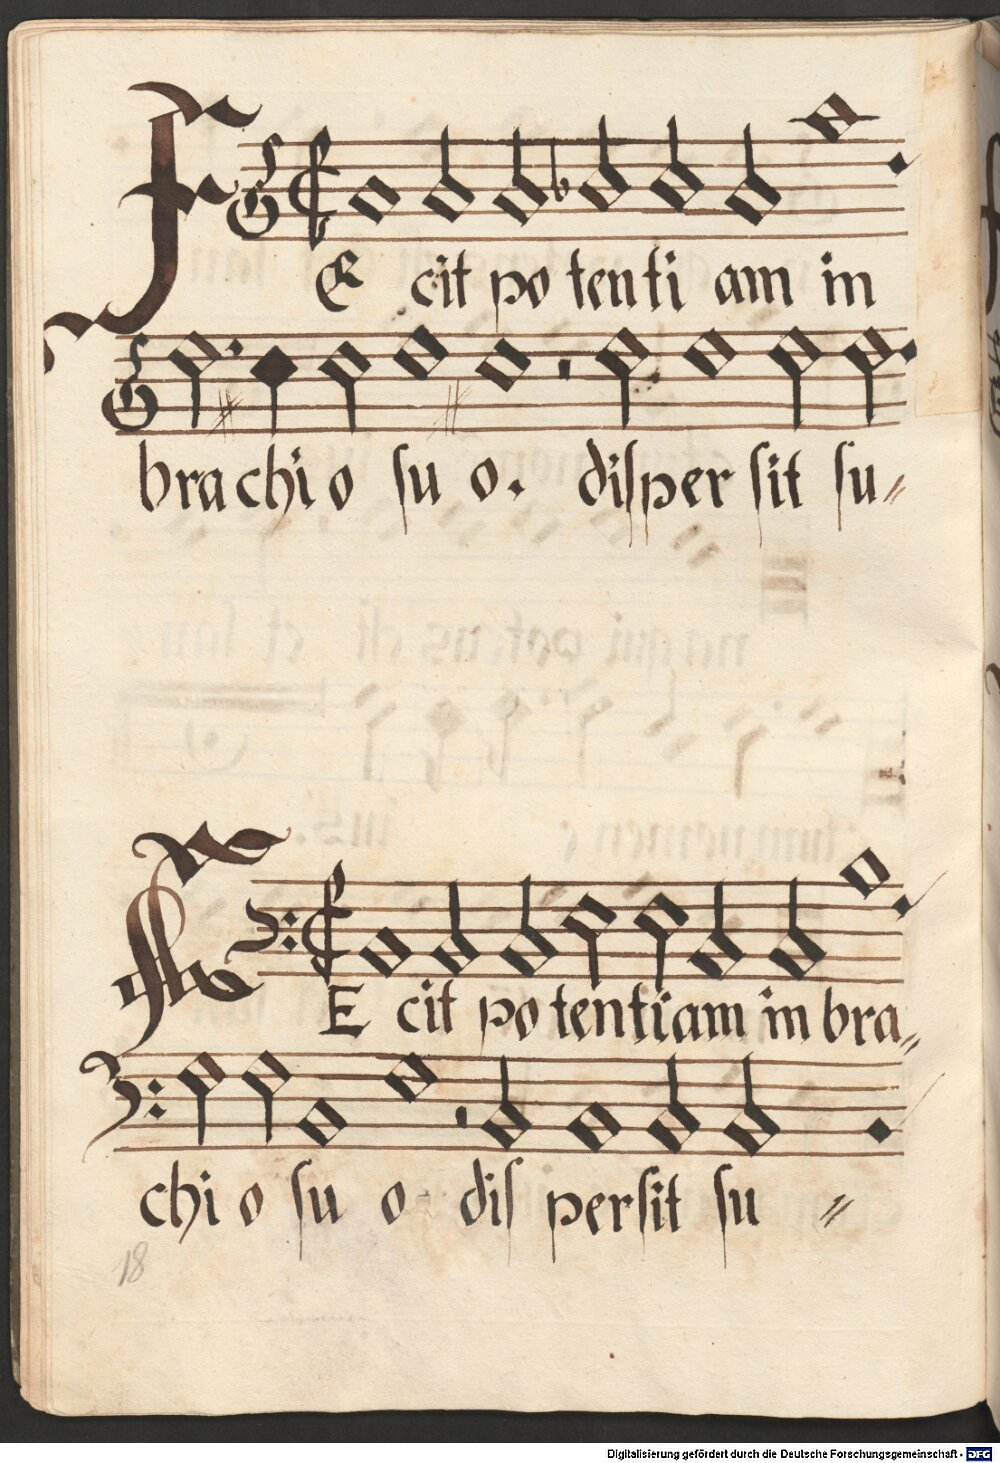 FE cit po tenti am in
bra chi o su o. disper sit su
FE cit po tentiam in bra
chi o su o disper sit su
18
Digitalisierung gefördert durch die Deutsche Forschungsgemeinschaft - DFG